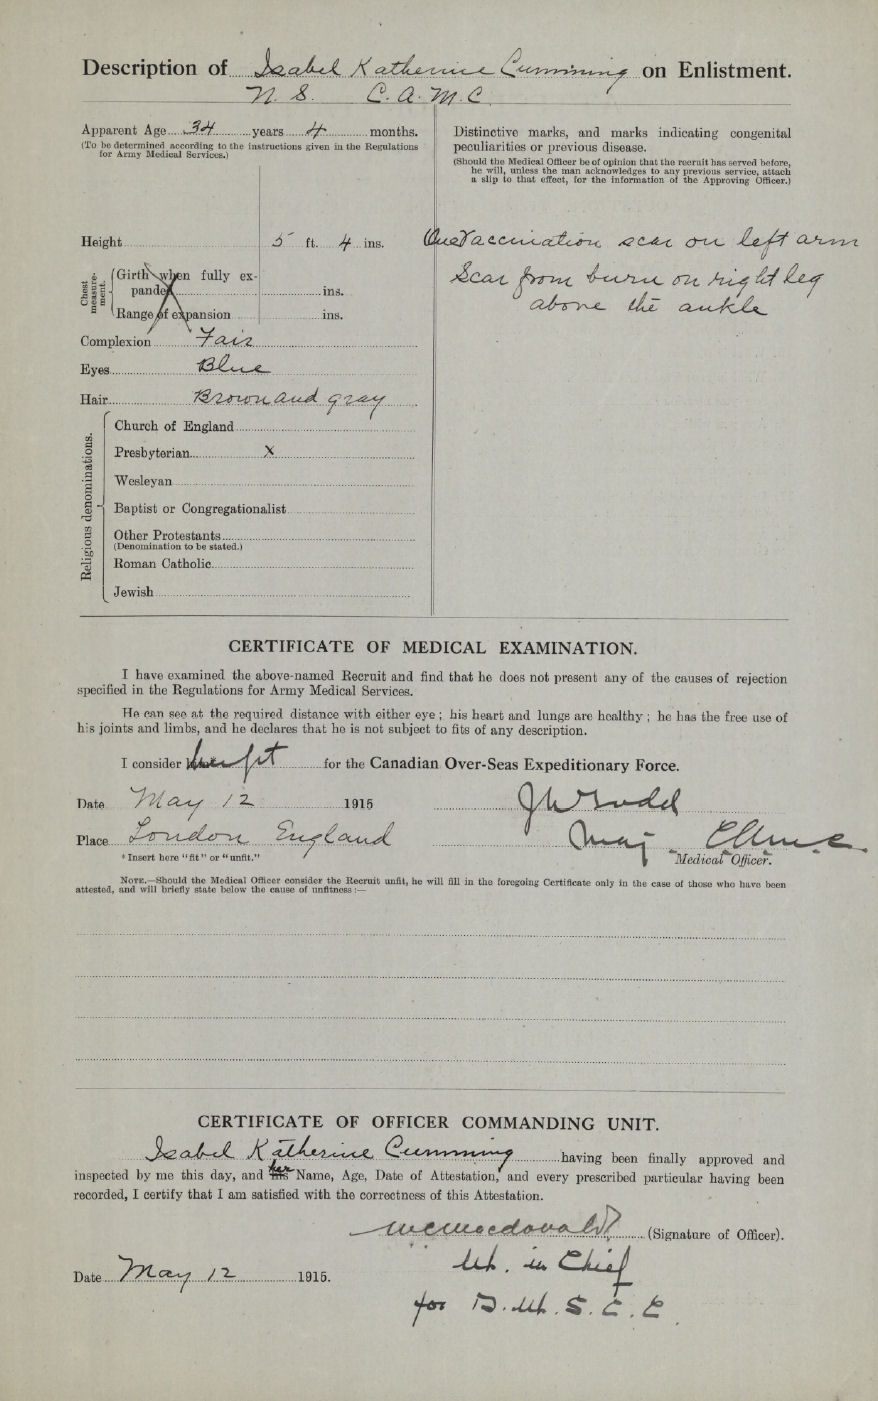 Description of Isabel Katherine Cumming on Enlistment.
N. S. C. A. M. C.
Apparent Age 34 years 4 months.
(To be determined according to the instructions given in the Regulations
for Army Medical Services.)
Height 5 ft. 4 ins.
Chest measure-ment.
Girth when fully ex-
panded ins.
Range of expansion ins.
Complexion Fair
Eyes Blue
Hair Brown and gray
Religious denominations.
Church of England
Presbyterian x
Wesleyan
Baptist or Congregationalist
Other Protestants
(Denomination to be stated.)
Roman Catholic
Jewish
Distinctive marks, and marks indicating congenital
peculiarities or previous disease.
(Should the Medical Officer be of opinion that the recruit has served before,
he will, unless the man acknowledges to any previous service, attach
a slip to that effect, for the information of the Approving Officer.)
One Vaccination scar on left arm
Scar from burn on right leg
above the ankle
CERTIFICATE OF MEDICAL EXAMINATION.
I have examined the above-named Recruit and find that he does not present any of the causes of rejection
specified in the Regulations for Army Medical Services.
He can see at the required distance with either eye; his heart and lungs are healthy; he has the free use of
his joints and limbs, and he declares that he is not subject to fits of any description.
I consider her fit for the Canadian Over-Seas Expeditionary Force.
Date May 12 1915
Place London England
Maj
Medical Officer.
*Insert here "fit" or "unfit."
NOTE.—Should the Medical Officer consider the Recruit unfit, he will fill in the foregoing Certificate only in the case of those who have been
attested, and will briefly state below the cause of unfitness:—
CERTIFICATE OF OFFICER COMMANDING UNIT.
Isabel Katherine Cumming having been finally approved and
inspected by me this day, and his her Name, Age, Date of Attestation, and every prescribed particular having been
recorded, I certify that I am satisfied with the correctness of this Attestation.
(Signature of Officer).
M. in Chief
Date May 12 1915.
for D. M. S. C. C.